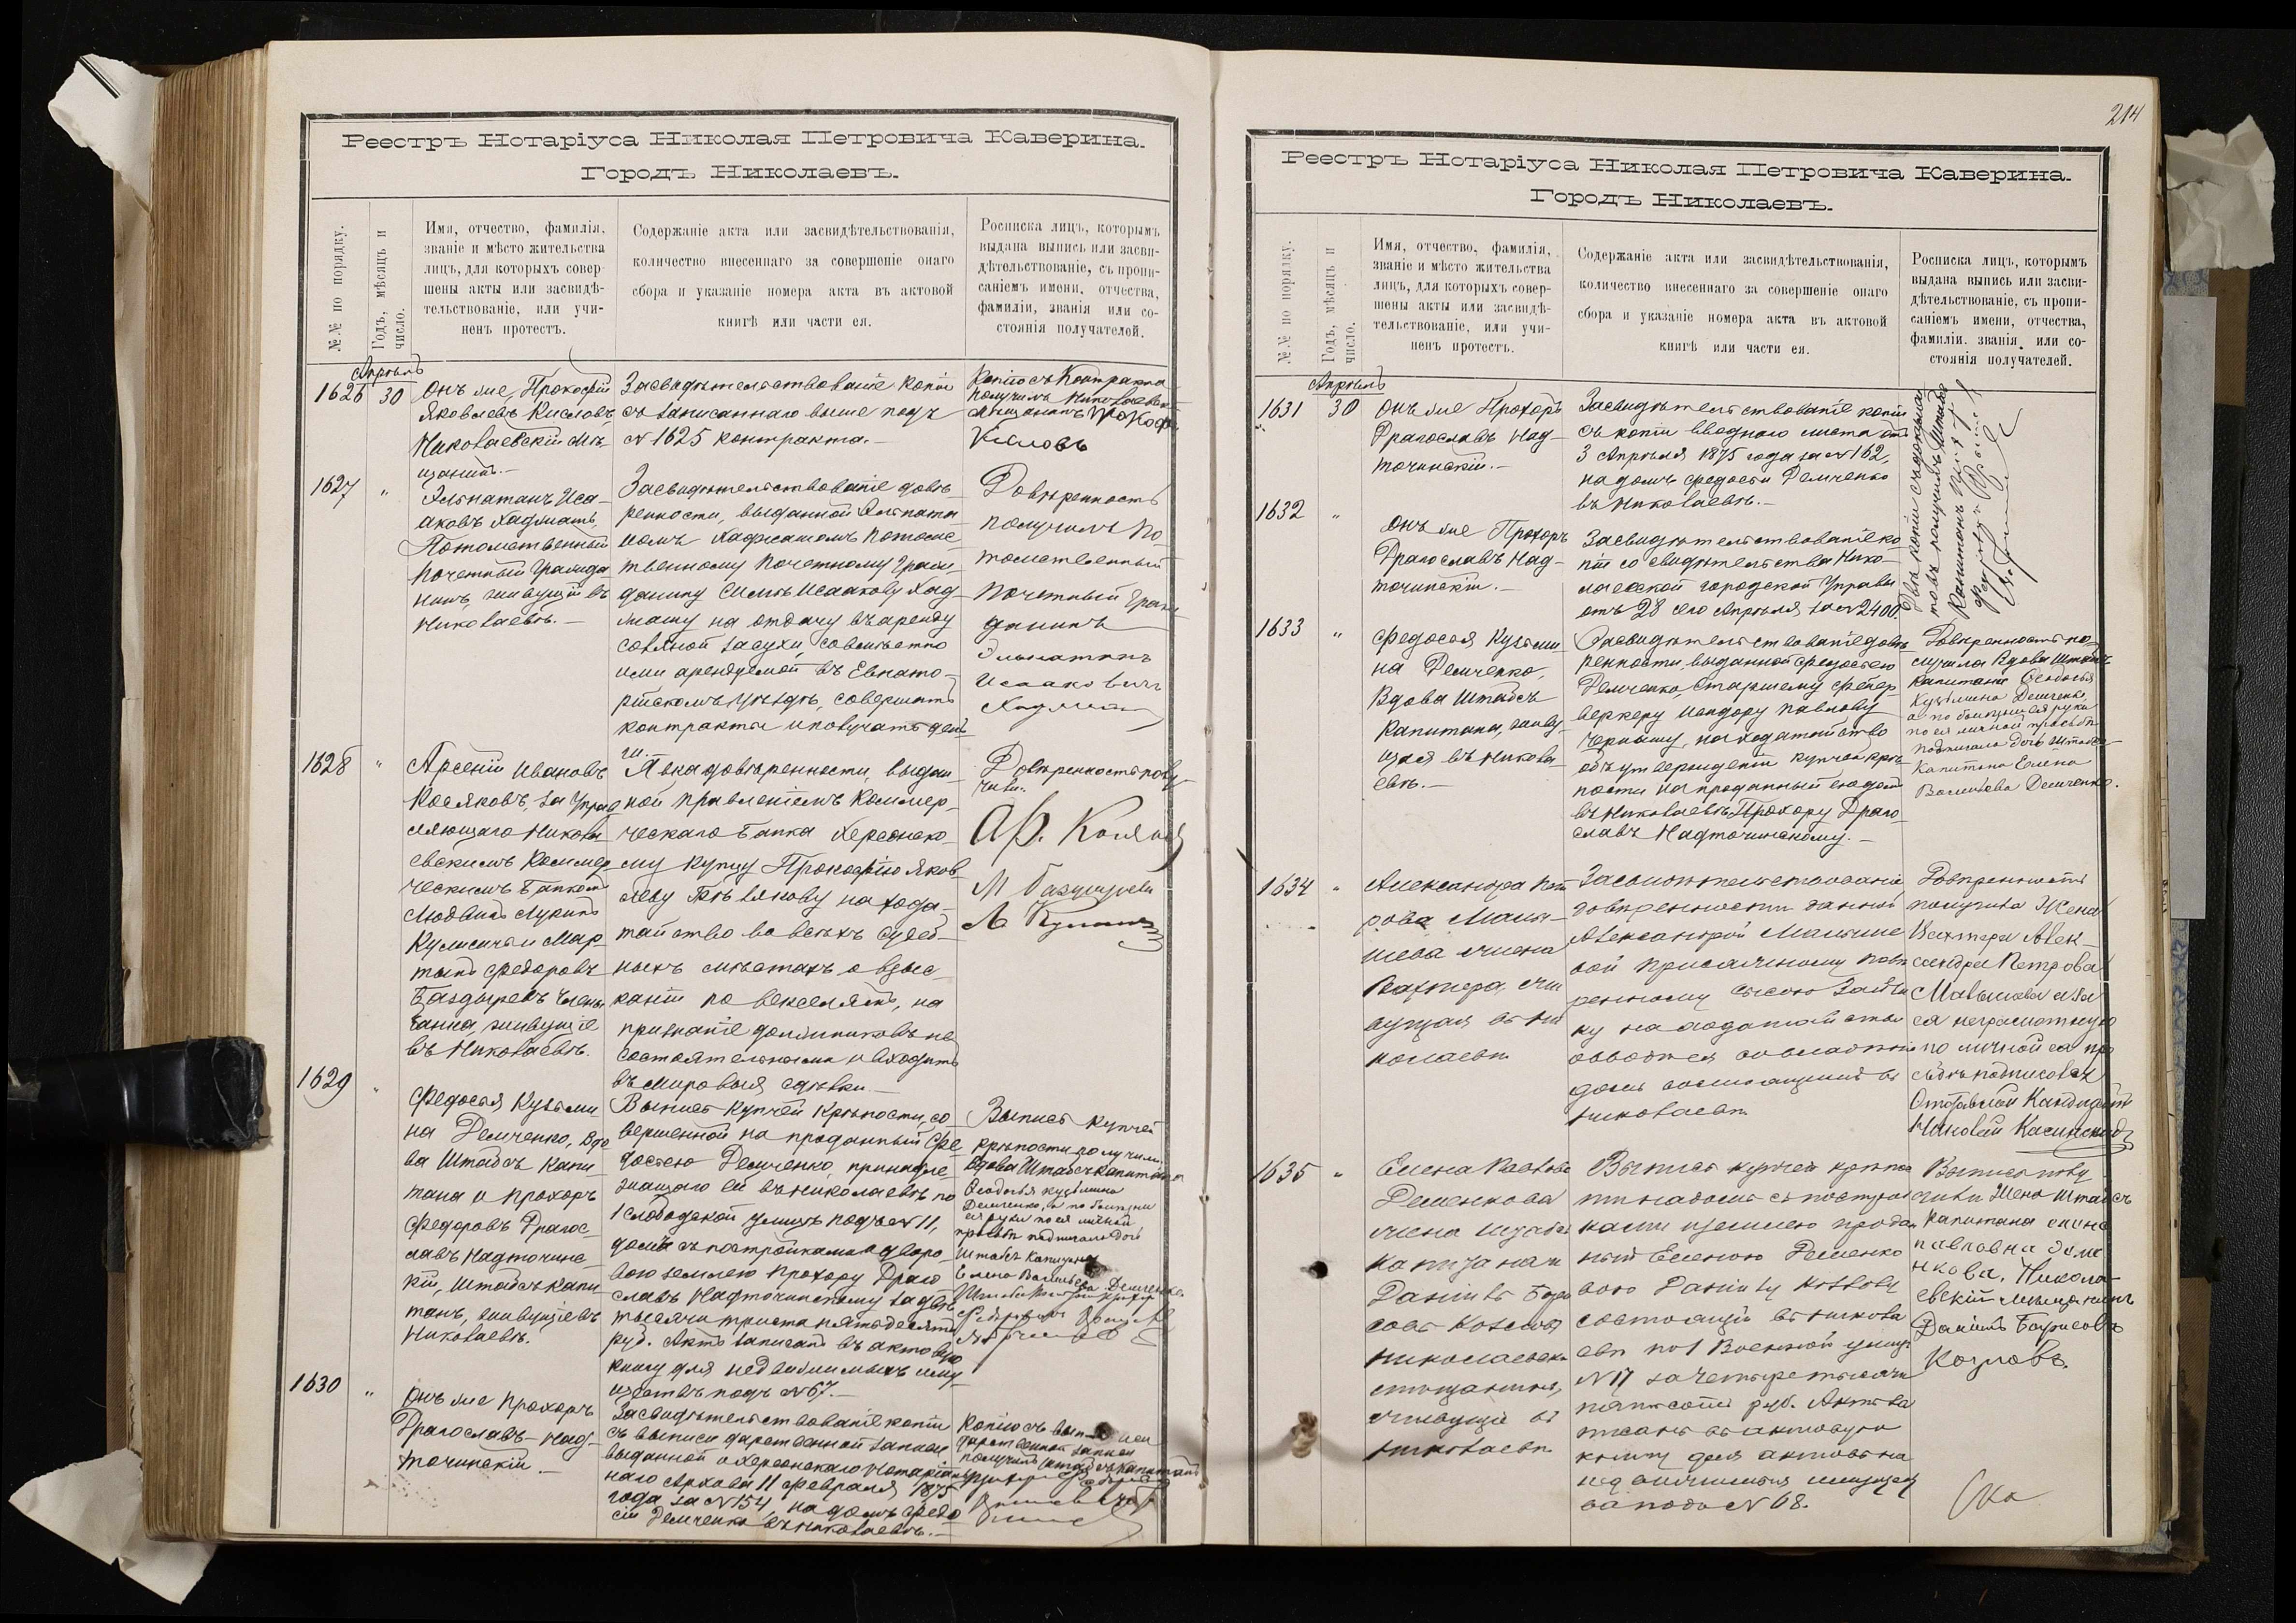 Реестръ Нотаріуса Николая Петровича Каверина.
Городъ Николаевъ.
№№ по порядку.
Годъ, мѣсяцъ и
число.
Имя, отчество, фамилія,
званіе и мѣсто жительства
лицъ, для которыхъ совер-
шены акты или засвидѣ-
тельствованіе, или учи-
ненъ протестъ.
Содержаніе акта или засвидѣтельствованія,
количество внесеннаго за совершеніе онаго
сбора и указаніе номера акта въ актовой
книгѣ или части ея.
Росписка лицъ, которымъ
выдана выпись или засви-
дѣтельствованіе, съ пропи-
саніемъ имени, отчества,
фамиліи, званія или со-
стоянія получателей.
Апрѣль
1626 30
Онъ же, Прокофій
Яковлевъ Кисловъ,
Николаевскій мѣ-
щанинъ.-
Засвидѣтельствованіе копіи
съ записаннаго выше подъ
№ 1625 контракта.-
Копію съ Контракта
получилъ
мещанинъ
Кисловъ
1627 "
Эльнатанъ Иса-
аковъ Хаджашъ,
Потомственный
почетный гражда
нинъ, живущій въ
Николаевѣ.-
Засвидѣтельствованіе довѣ-
ренности, выданной Эльната-
номъ Хаджашомъ потомс-
твенному почетному граж-
данину Симѣ Исаакову Хад-
жашу на отдачу въ аренду
соляной засухи, совмѣстно
ими арендуемой въ Евпато-
рійскомъ уѣздѣ, совершать
контракты и получать день
ги.
Довѣренность
получилъ По
томственный
Почетный Граж
данинъ
Эльнатанъ
Исаакович
1628 "
Арсеній Ивановъ
Косяковъ, за Управ
ляющаго Никола
евскимъ Коммер
ческимъ Банкомъ
Людвигъ
и Мар-
тынъ Федоровъ
Баздыревъ Члены
банка, живущіе
въ Николаевѣ.
Явка довѣренности, выдан-
ной правленіемъ Коммер-
ческаго банка Херсонско-
му купцу Прокофію Яков-
леву на хода-
тайство во всѣхъ судеб-
ныхъ мѣстахъ о взыс
каніи по векселямъ, на
признаніе должниковъ не
состоятельными и входить
въ мировыя сдѣлки.-
Довѣренность полу-
чили.
1629 "
Федосья Кузьми
на Демченко, Вдо
ва Штабсъ Капи
тана и Прохоръ
Федоровъ Драгос-
лавъ Надточинс-
кій, Штабсъ капи
танъ, живущіе въ
Николаевѣ.
Выпись купчей крѣпости, со
вершенной на проданный Фе
досьею Демченко, принадле-
жащаго ей въ Николаевѣ по
1 слободской улицѣ подъ № 11,
дома съ постройками и дворо
вою землею Прохору Драго
славъ Надточинскому за двѣ
тысячи триста пятьдесятъ
руб. Актъ записанъ въ актовую
книгу для недвижимыхъ иму-
ществъ подъ № 67.-
Выпись купчей
крѣпости получили
вдова Штабсъ Капитана
Феодосья кузьмина
Демченко, а по болезни
ея руки по ея личной
просьбѣ подписала дочь
Штабсъ Капитана
Елена Васильева Демченко
1630 "
Онъ же Прохоръ
Драгославъ-Над-
точинскій.-
Засвидѣтельствованіе копіи
съ выписи дарственной записи
выданной изъ Херсонскаго Нотаріаль
наго Архива 11 Февраля 1875
года за № 154, на домъ Федо
сіи Демченко въ Николаевѣ.-
Копію съ
дарственной записи
получилъ штабсъ капитанъ
214
Реестръ Нотаріуса Николая Петровича Каверина.
Городъ Николаевъ.
№№ по порядку.
Годъ, мѣсяцъ и
число.
Имя, отчество, фамилія,
званіе и мѣсто жительства
лицъ, для которыхъ совер-
шены акты или засвидѣ-
тельствованіе, или учи-
ненъ протестъ.
Содержаніе акта или засвидѣтельствованія,
количество внесеннаго за совершеніе онаго
сбора и указаніе номера акта въ актовой
книгѣ или части ея.
Росписка лицъ, которымъ
выдана выпись или засви-
дѣтельствованіе, съ пропи-
саніемъ имени, отчества,
фамиліи, званія или со-
стоянія получателей.
Апрѣль
1631 30
Онъ же Прохоръ
Драгославъ Над-
точинскій.-
Засвидѣтельствованіе копіи
съ копіи вводнаго листа отъ
3 Апрѣля 1875 года за № 162,
на домъ Федосіи Демченко
въ Николаевѣ.-
1632 "
Онъ же Прохоръ
Драгославъ Над-
точинскій.-
Засвидѣтельствованіе ко-
піи со свидѣтельства Нико-
лаевской городской Управы
отъ 28 сего Апрѣля за № 2400.
1633 "
Федосья Кузьми
на Демченко,
Вдова Штабсъ
Капитана, живу
щая въ Никола
евѣ.-
Засвидѣтельствованіе довѣ
ренности, выданной Федосьею
Демченко, старшему Фейер
веркеру Исидору Павлову
Черныму, на ходатайство
объ утвержденіи купчей крѣ
пости на проданный ею домъ
въ Николаевѣ Прохору Драго-
славъ Надточинскому.-
Довѣренность по
лучила Вдова Штабсъ
Капитана Феодосья
Кузьмина Демченко,
а по болезни ея руки
по ея личной просьбѣ
подписала дочь Штабсъ-
Капитана Елена
Васильева Демченко.
1634 "
Александра Пет
рова
жена
Вахтера, жи
вущая въ Ни
колаевѣ
Засвидѣтельствованіе
довѣренности данной
Александрой
вой присяжному повѣ
ренному
ку на ходатайство
о вводѣ ея во владѣніе
домъ состоящимъ въ
Николаевѣ
Довѣренность
получила Жена
Вахтера Алек-
сандра Петрова
а за
ея неграмотную
по личной ея про
сьбѣ подписался
Отставной Кандидатъ
1635 "
Елена Павлова
Доменкова
жена штабсъ
капитана и
Даніилъ Бори
совъ Козловъ
николаевск
мещанинъ,
живущіе въ
Николаевѣ
Выпись купчей крѣпос
ти на домъ съ построй
ками и землею продан
ный Еленою Доменко
вою Даніилу Козлову
состоящій въ Никола
евѣ по 1 Военной улицѣ
№ 17 за четыре тысячи
пятьсотъ руб. Актъ за
писанъ въ актовую
книгу для актовъ на
недвижимыя имущест
ва подъ № 68.
Выпись полу
чили Жена Штабсъ
Капитана елена
павловна Доме
нкова. Никола-
евскій мещанинъ
Даніилъ Борисовъ
Козловъ.